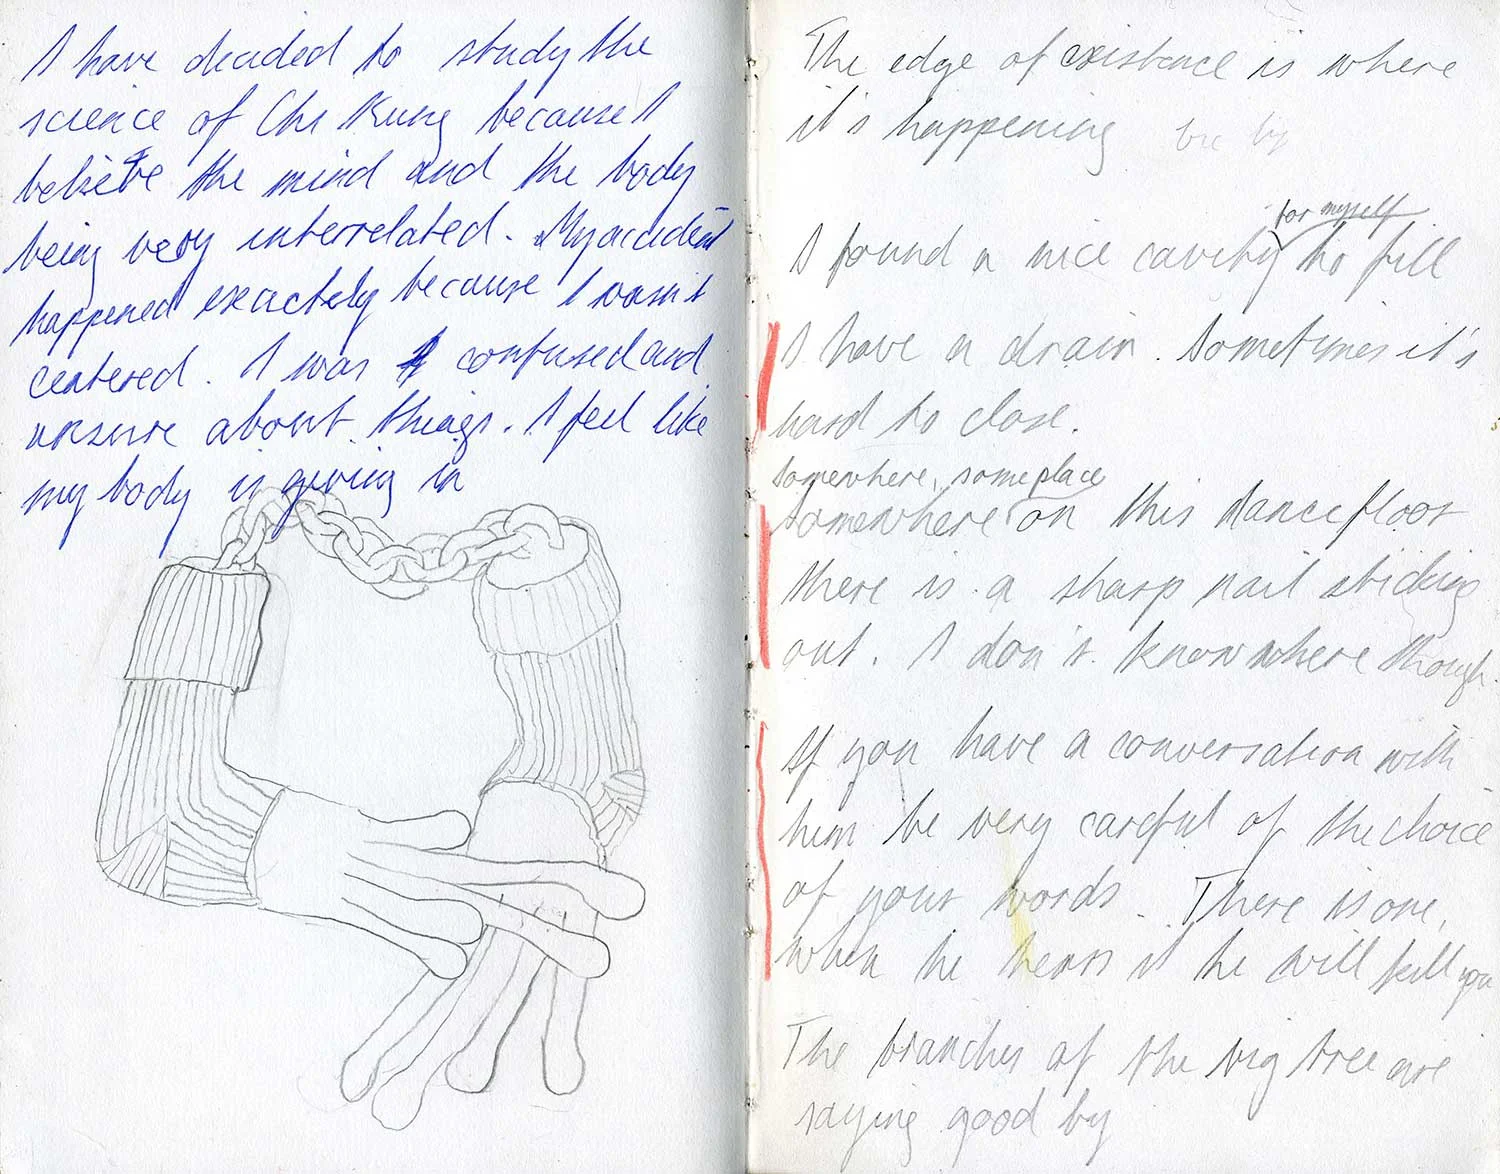 I have decided to study the
science of Chi Kung because I
believe the mind and the body
being very interrelated. My accident
happened exactely because I wasn't
centered. I was confused and
unsure about things. I feel like
my body is giving in
The edge of existence is where
it's happening
for myself
I found a nice cavity to fill
I have a drain. Sometimes it's
hard to close.
somewhere, someplace
Somewhere on this dancefloor
there is a sharp nail sticking
out. I don't know where though.
If you have a conversation with
him be very careful of the choice
of your words. There is one,
when he hears it he will kill you
The branches of the big tree are
saying good by